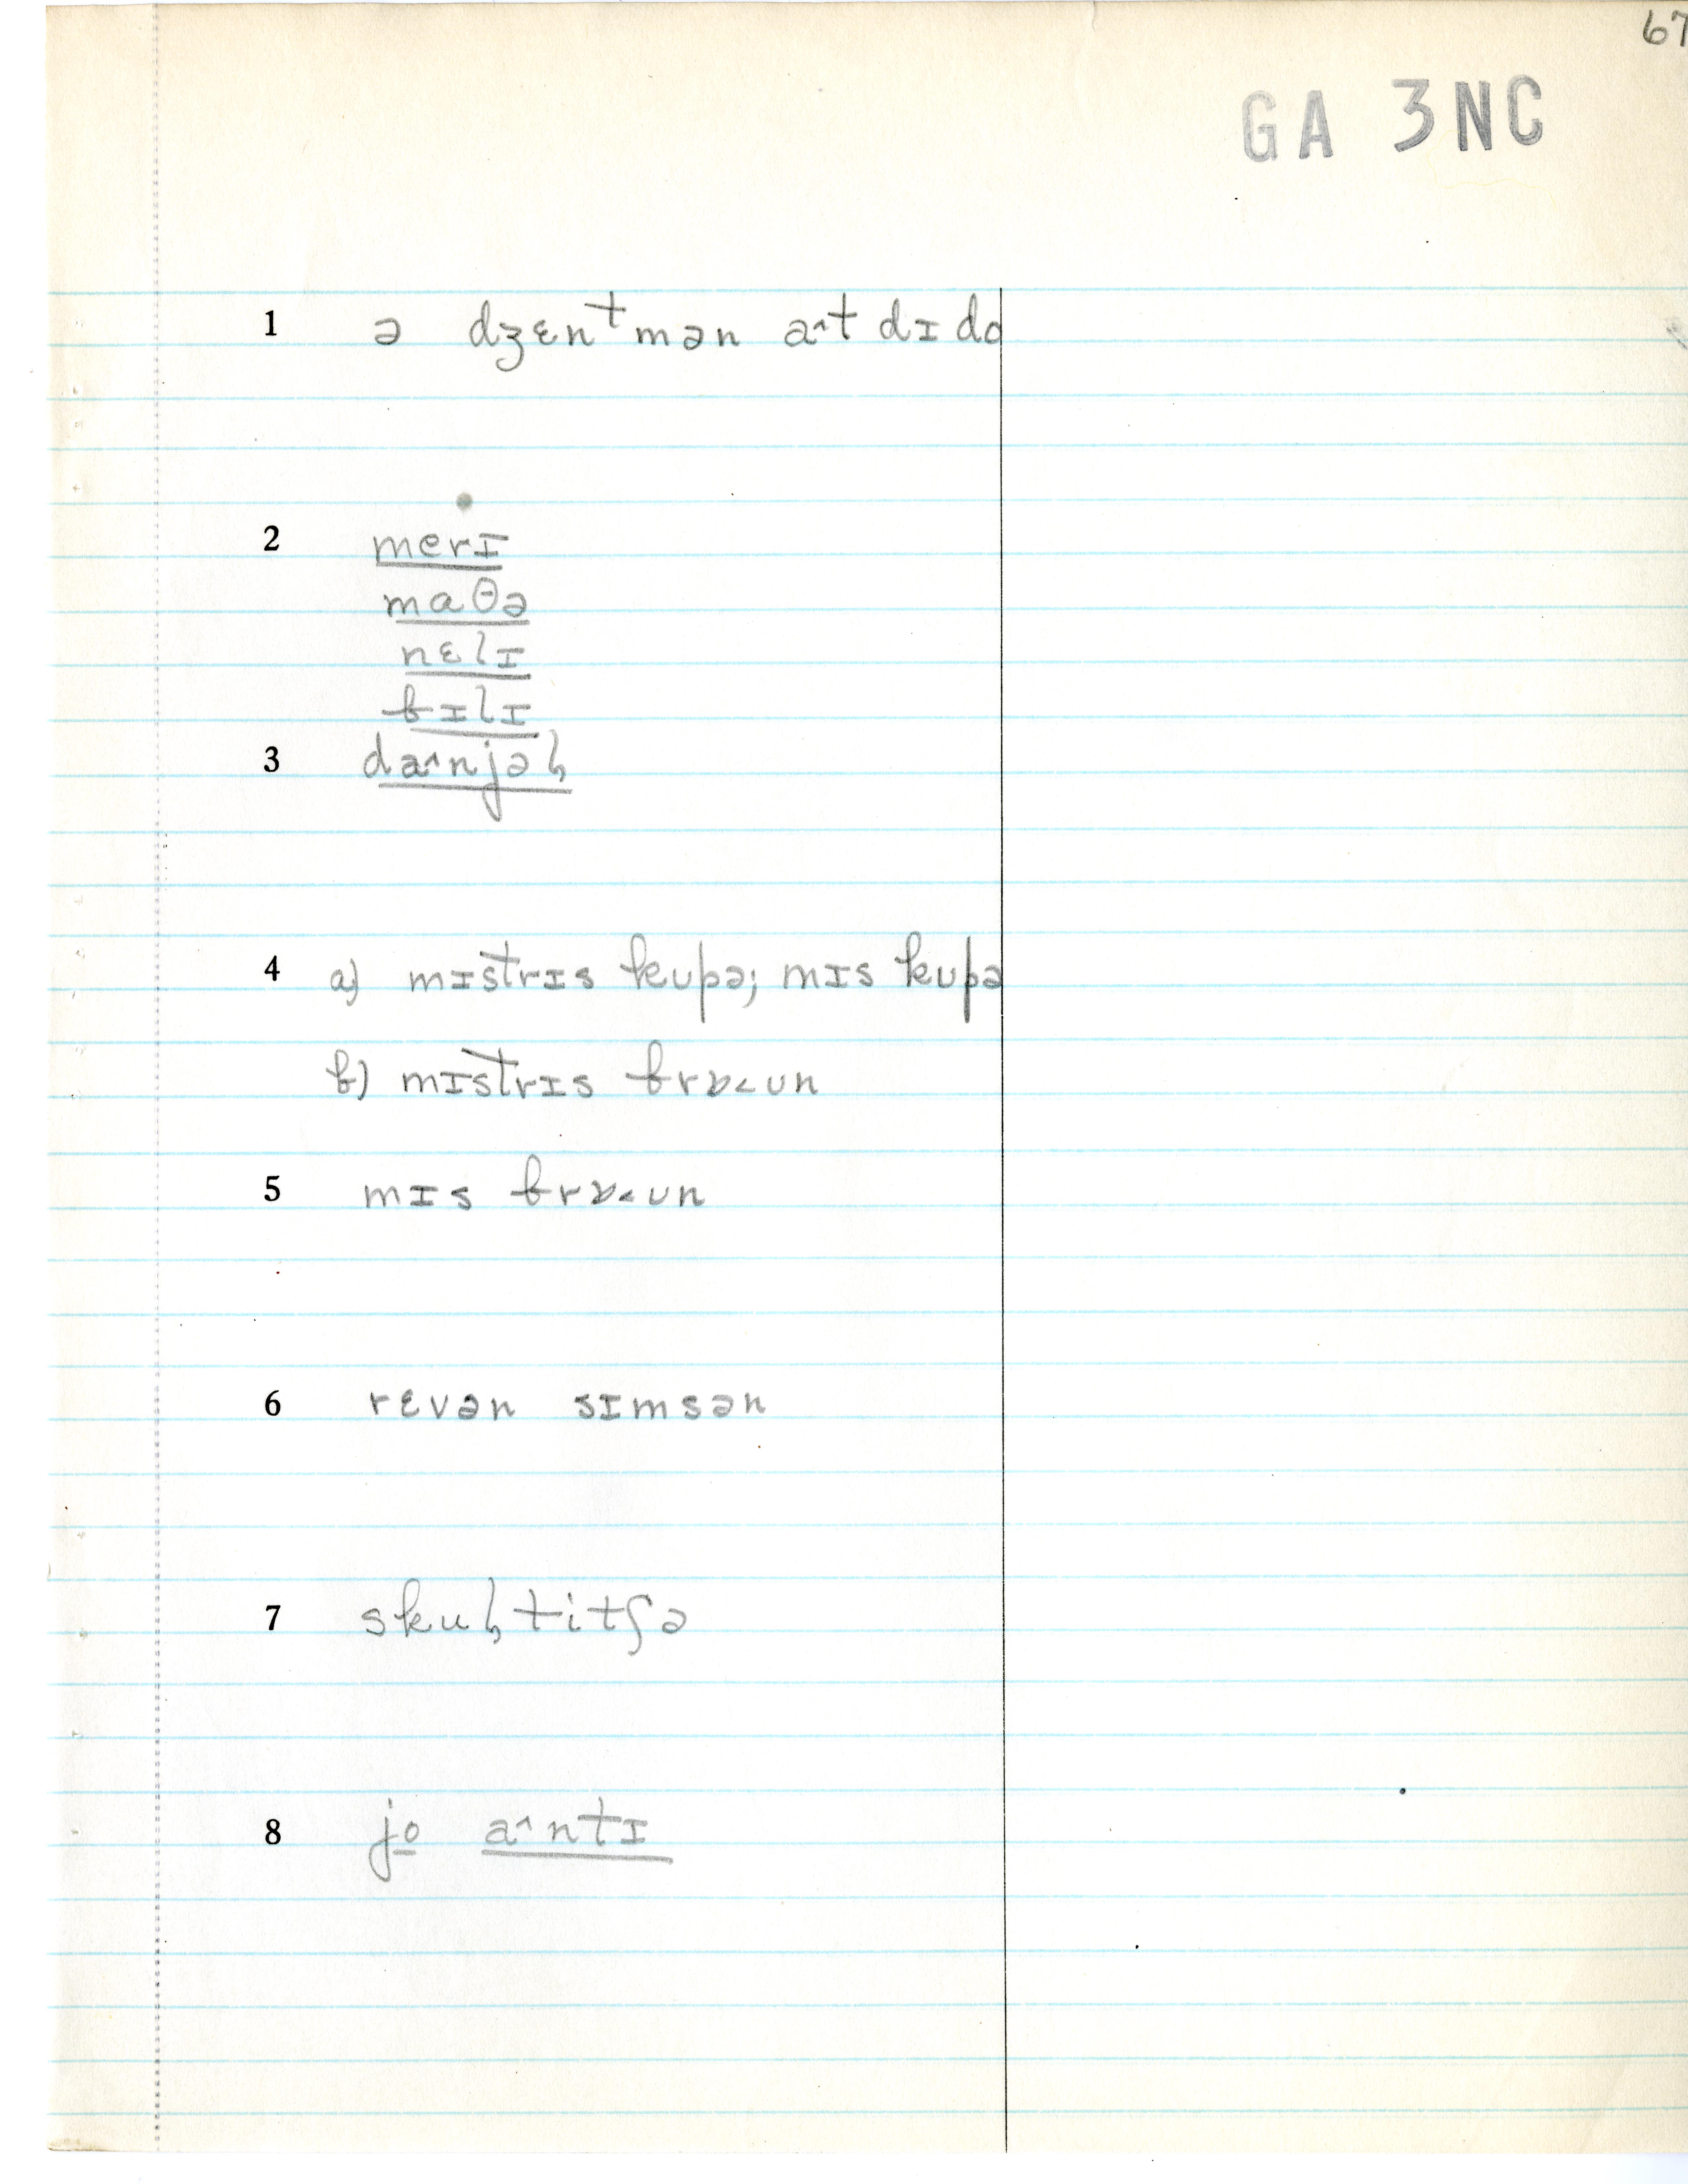 67
GA 3NC
1 ə dʒɛnᵗmən a˄t dɪ do
2 merɪ
maθə
nɛlɪ
bɪlɪ
3 da˄njəl̡
4 a) mɪstrɪs kupə; mɪs kupə
b) mɪstrɪs brɒ˂ʊn
5 mɪs brɒ˂ʊn
6 rɛvən sɪmsən
7 skul̡titʃə
8 jo a˄ntɪ